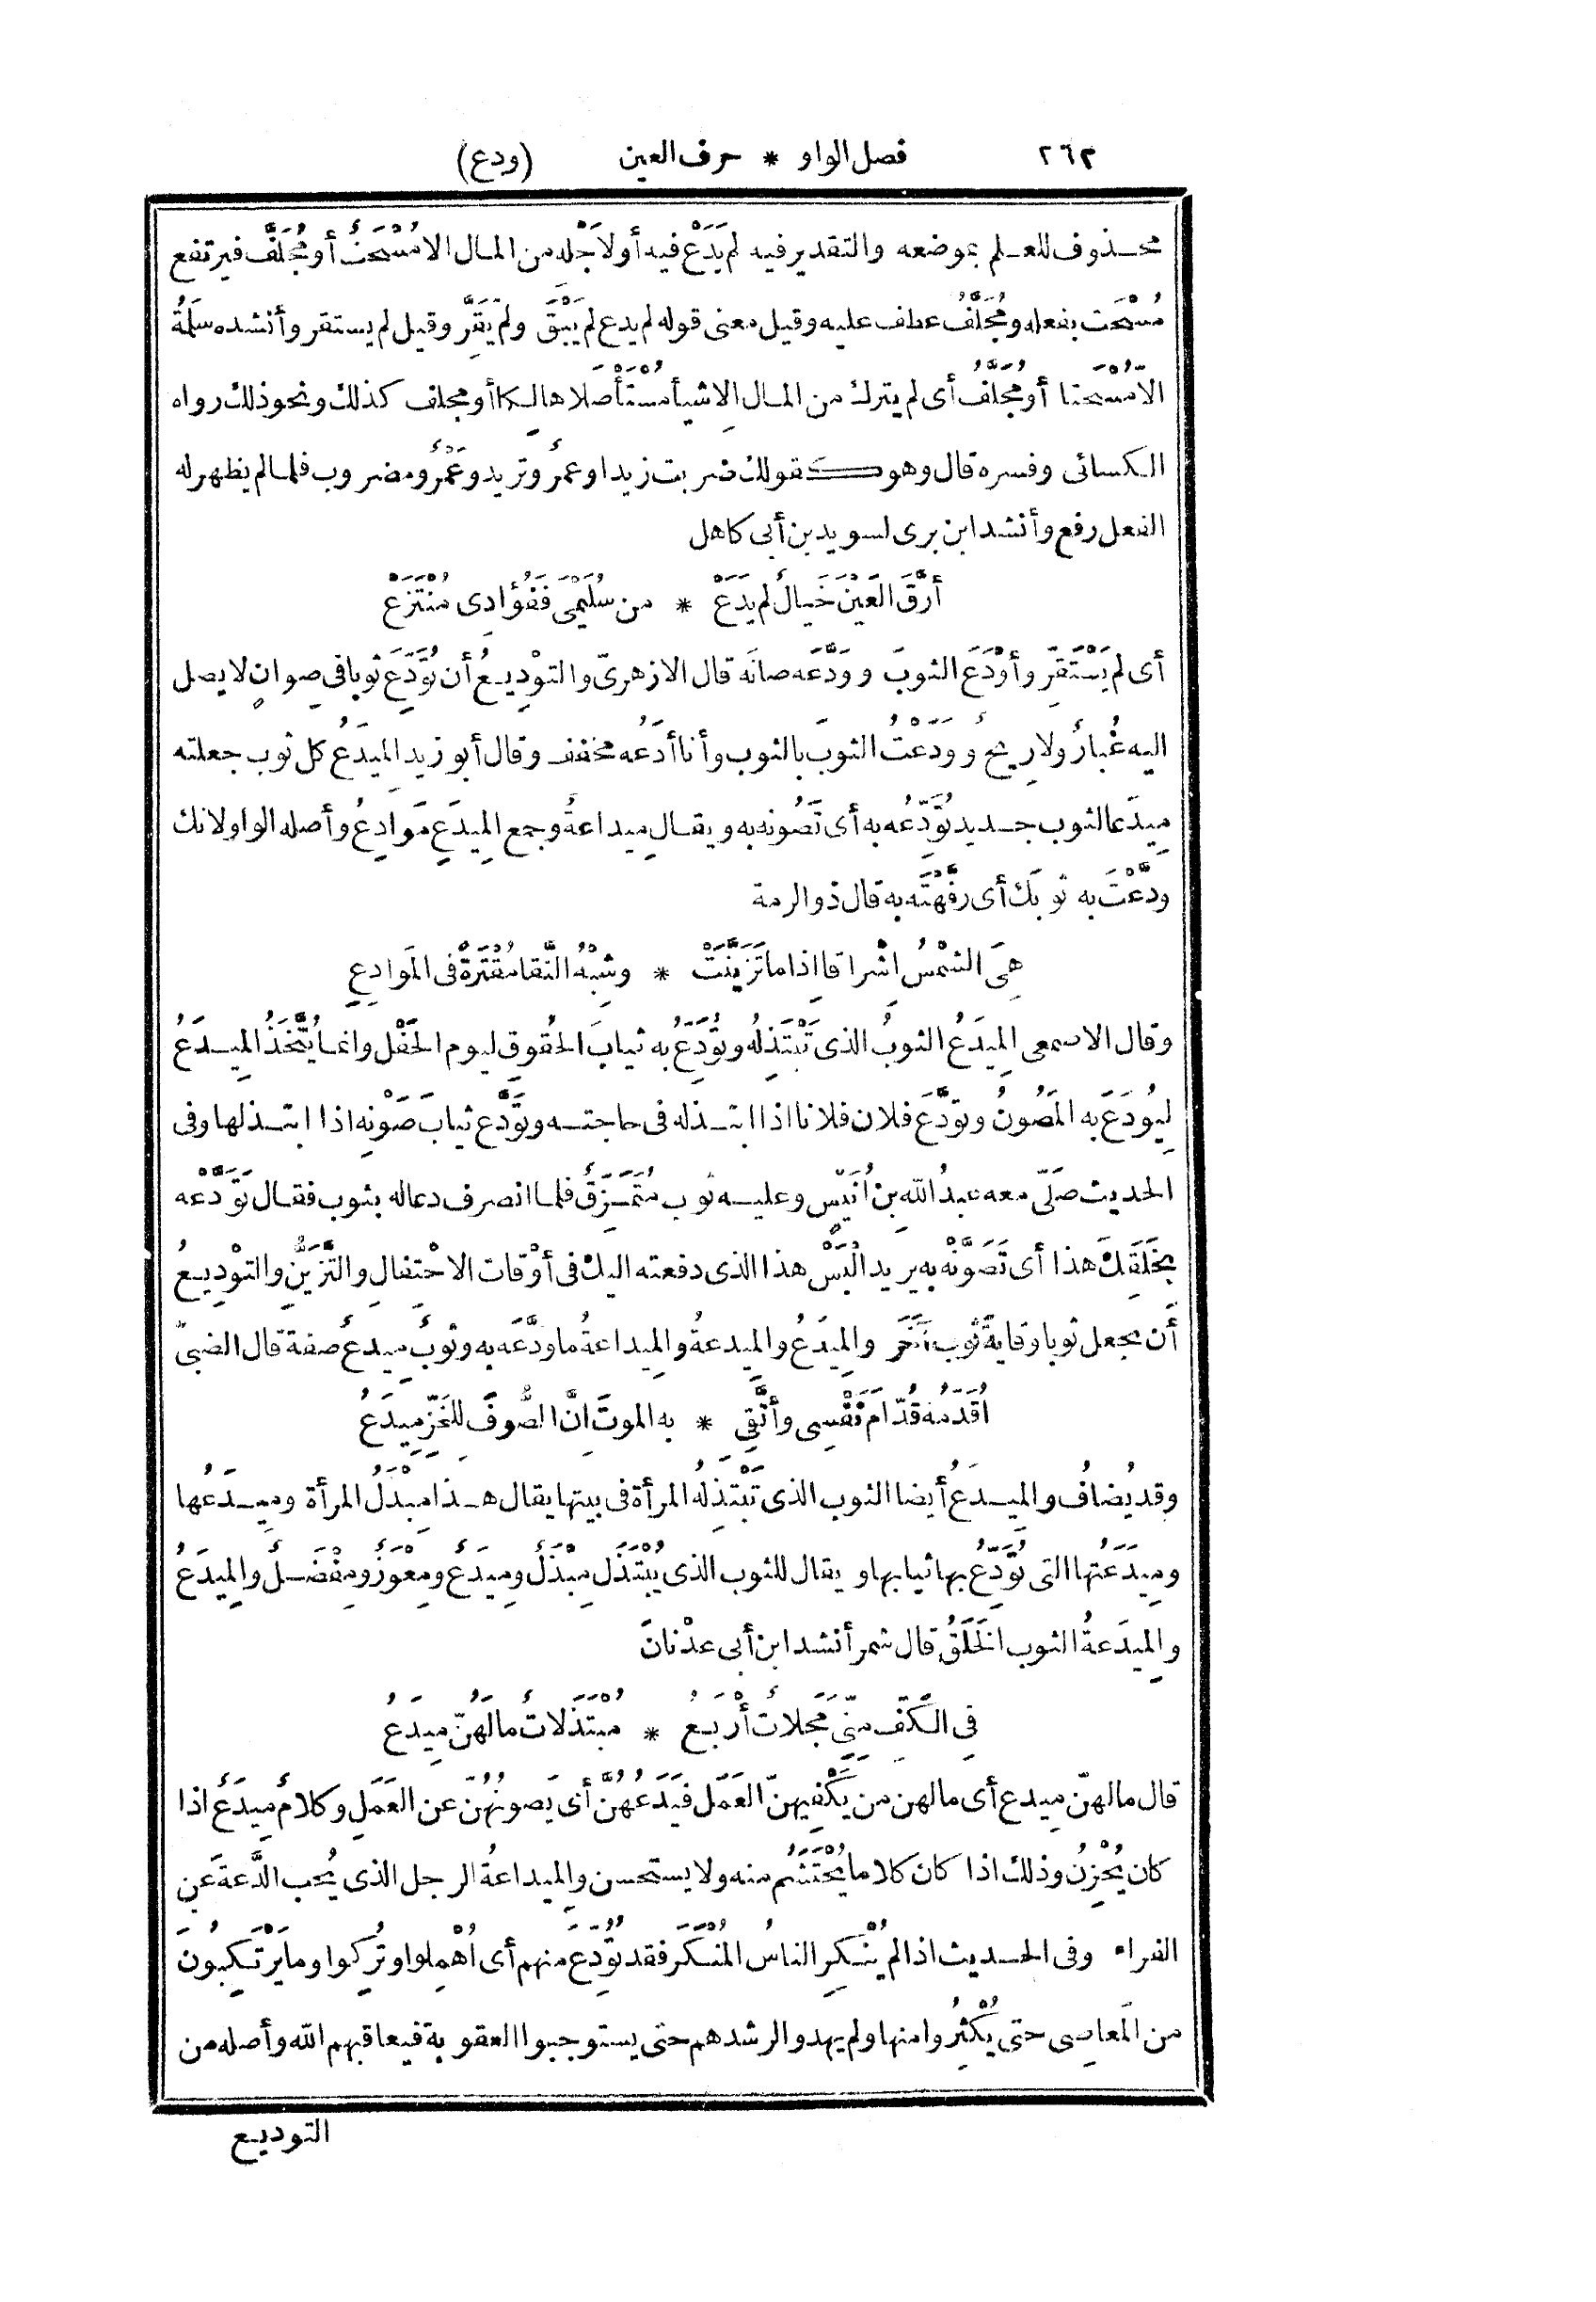 ٢٦٢ فصل الواو * حرف العين (ودع)
محذوف للعلم بموضعه والتقدير فيه لم يَدَعْ فيه أو لاَجْلِه من المال الا مُسْحَتٌ أو مُجَلَّفٌ فيرتفع
مُسْحَت بفعله ومُجَلَّفٌ عطف عليه وقيل معنى قوله لم يدع لم يَبْقَ ولم يَقِرَّ وقيل لم يستقر وأنشده سلمةُ
الّا مُسْحَتا أو مُجَلَّفُ أى لم يترك من المال الا شيأ مُسْتأْصَلا هالِكا أو مجلف كذلك ونحو ذلك رواه
الكسائى وفسره قال وهو كقولك ضربت زيدا وعمرٌو تريد وعَمْرٌو مضروب فلما لم يظهر له
الفعل رفع وأنشد ابن برى لسويد بن أبى كاهل
أَرَّقَ العَيْنَ خَيالٌ لم يَدَعْ * من سُلَيْمَى فَفُؤادِى مُنْتَزَعْ
أى لم يَسْتَقِرَّ وأَوْدَعَ الثوبَ ووَدَّعَه صانَه قال الازهرىّ والتوْدِيعُ أن تُوَدِّعَ ثوبا فى صِوانٍ لا يصل
اليه غُبارٌ ولا رِيحٌ ووَدَعْتُ الثوبَ بالثوب وأنا أَدَعُه مخفف وقال أبو زيد المِيدَعُ كل ثوب جعلته
مِيدَعا لثوب جديد تُوَدِّعُه به أى تَصُونه به ويقال مِيداعةٌ وجمع المِيدَعِ مَوادِعُ وأصله الواو لانك
ودَّعْتَ به ثوبَك أى رفَّهْتَه به قال ذو الرمة
هِىَ الشمْسُ اشْراقا اذا ما تَزَيَّنَتْ * وشِبْهُ النَّقا مُقْتَرَةً فى المَوادِعِ
وقال الاصمعى المِيدَعُ الثوبُ الذى تَبْتَذِلُه وتُوَدِّعُ به ثيابَ الحُقوقِ ليوم الحَفْل وانما يُتَّخَذُ المِيدَعُ
لِيُودَعَ به المَصُونُ وتودَّعَ فلان فلانا اذا ابتذله فى حاجته وتَوَدَّع ثيابَ صَوْنِه اذا ابتذلها وفى
الحديث صلّى معه عبدُ اللّه بن أُنَيْسٍ وعليه ثوب مُتَمَزِّقٌ فلما انصرف دعا له بثوب فقال تَوَدَّعْه
بخَلَقِكَ هذا أى تَصَوَّنْه به يريد الْبَسْ هذا الذى دفعته اليك فى أوْقات الاحْتِفالِ والتَّزَيُّنِ والتوْدِيعُ
أَن يجعل ثوبا وقايةَ ثوبٍ آخَرَ والمِيدَعُ والمِيدعةُ والمِيداعةُ ما ودَّعَه به وثوبٌ مِيدعٌ صفة قال الضبىّ
أُقَدِّمُه قُدّامَ نَفْسِى وأَتَّقِى * به الموتَ انَّ الصُّوفَ للخَزِّ مِيدَعُ
وقد يُضافُ والمِيدَعُ أيضا الثوب الذى تَبْتَذِلُه المرأة فى بيتها يقال هذا مِبْذَلُ المرأة ومِيدَعُها
ومِيدَعَتُها التى تُوَدِّعُ بها ثيابها ويقال للثوب الذى يُبْتَذَل مِبْذَلٌ ومِيدَعٌ ومِعْوَزٌ ومِفْضَلٌ والمِيدَعُ
والمِيدَعةُ الثوب الخَلَقُ قال شمر أنشد ابن أبى عدْنانَ
فِى الكَفِّ مِنِّى مَجَلاتٌ أَرْبَعُ * مُبْتَذَلاتٌ ما لَهُنَّ مِيدَعُ
قال ما لهنّ مِيدع أى ما لهن من يَكْفِيهِنّ العَمَل فيَدَعُهُنَّ أى يَصونُهُنّ عن العَمَلِ وكلامٌ مِيدَعٌ اذا
كان يُحْزِنُ وذلك اذا كان كلاما يُحْتَشَم منه ولا يستحسن والمِيداعةُ الرجل الذى يُحب الدَّعةَ عن
الفراء وفى الحديث اذا لم يُنْكِرِ الناسُ المُنْكَرَ فقد تُوُدِّعَ منهم أى أُهْمِلوا وتُرِكوا وما يَرْتَكِبُونَ
من المَعاصِى حتى يُكْثِرُوا منها ولم يهدوا لرشدهم حتى يستوجبوا العقوبة فيعاقبهم اللّه وأصله من
التوديع